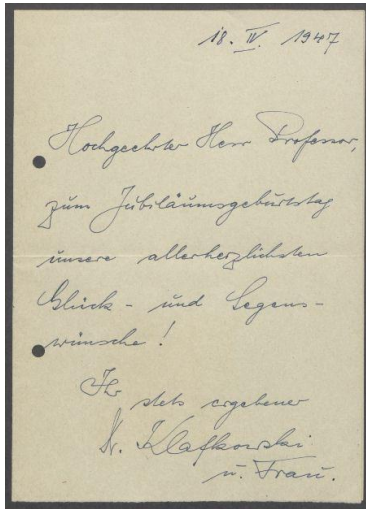 18. IV. 1947
Hochgeehrter Herr Professor,
zum Jubiläumsgeburtstag
unsere allerherzlichsten
Glück- und Segens-
wünsche!
Ihr
stets ergebener
Dr. Klafkowski
u. Frau.